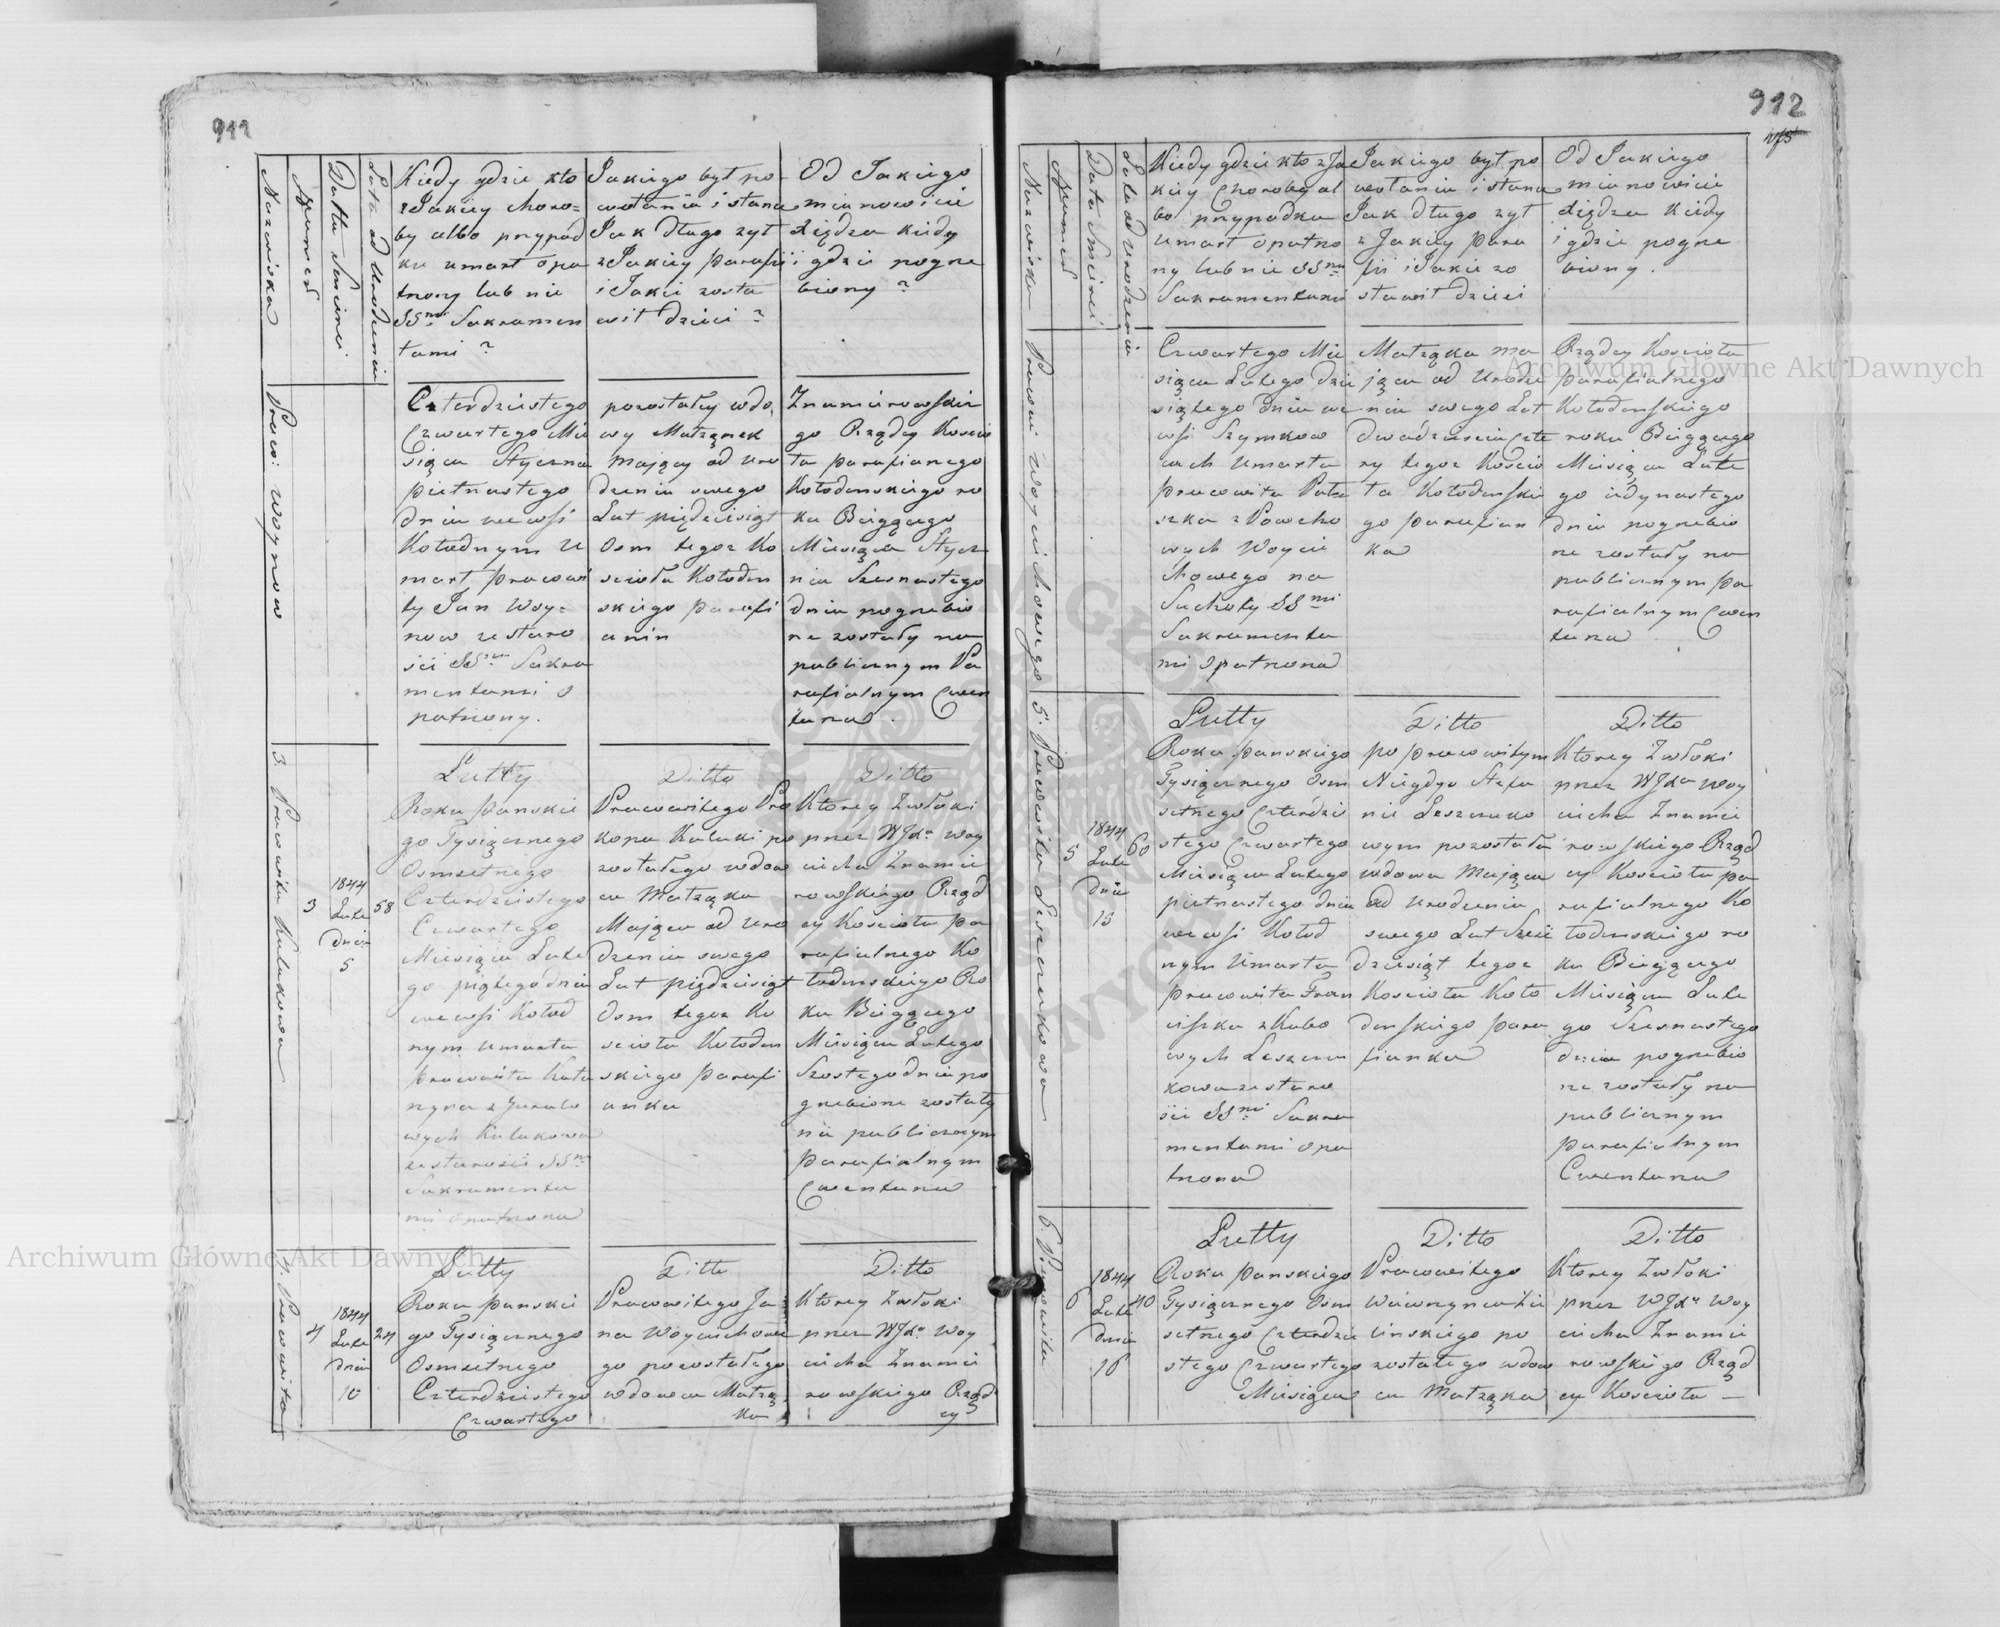 911
Nazwiska
Numer
Datta Smierci
Lata od Urodzenia
Kiedy gdzie kto
z Jakiey choro=
by albo przypad
ku umarł opa
trzony lub nie
SSmi Sakramen
tami ?
Jakiego był po
wołania i stanu
Jak długo zył
z Jakiey Parafii
i Jakie zosta
wił dzieci ?
Od Jakiego
mianowicie
xiędza kiedy
i gdzie pogrze
biony ?
Praco: Woynow
Czterdziestego
Czwartego Mie
siąca Stycznia
pietnastego
dnia we wsi
Kołodnym U
marł pracowi
ty Jan Woy=
now ze staro
sci SSmi Sakra
mentami o
patrzony.
pozostałey wdo,
wy Małżonek
Maiący od Uro
dzenia swego
Lat pięдziesiąt
Osm tegoz Ko
scioła Kołoden
skiego Parafi
anin
Znamierowskie
go Rządcy Koscio
ła parafianego
Kołodenskiego ro
ku Bieżącego
Miesiąca Stycz
nia Szesnastego
dnia pogrzebio
ne zostały na
publicznym Pa
rafialnym Cmen
tarza.
3. Pracowita Kulakowa
3
1844
Lute
dnia
5
58
Lutty
Roku Panskie
go Tysiącznego
Osmsetnego
Czterdziestego
Czwartego
Miesiąca Lute
go piątego dnia
we wsi Kołod
nym umarła
pracowita Kata
rzyna z Jurако
wych Kulakowa
ze starości SSmi
Sakramenta
mi opatrzona
Ditto
Pracowitego Pro
kopa Kulaki po
zostałego wdow
ca Małżąka
Maiąca od Uro
dzenia swego
Lat pięдziesiąt
Osm tegoz Ko
scioła Kołoden
skiego Parafi
anka
Ditto
Ktorey Zwłoki
przez WJXa Woy
ciecha Znamie
rowskiego Rząd
cy Koscioła Pa
rafialnego Ko
łodenskiego Ro
ku Bieżącego
Miesiąca Lutego
Szostego dnia po
grzebione zostały
na publicznym
Parafialnym
Cmentarza
4. Pracowita
4
1844
Lute
dnia
10
24
Lutty
Roku Panskie
go Tysiącznego
Osmsetnego
Czterdziestego
Czwartego
Ditto
Pracowitego Ja
na Woyciechowe
go pozostałego
wdowca Małżą,
ka
Ditto
Ktorey Zwłoki
przez WJXa Woy
ciecha Znamie
rowskiego Rząd
cy
912
Nazwiska
Numer
Data Smierci
Lata od Urodzenia
Kiedy gdzie kto z Ja
kiey Choroby al
bo przypadku
umarł opatrzo
ny lub nie SSmi
Sakramentami
Jakiego był po
wołania i stanu
Jak długo zył
z Jakiey Para
fii i Jakie zo
stawił dzieci
Od Jakiego
mianowicie
xiędza kiedy
i gdzie pogrze
biony.
Woyciechowego
Czwartego Mie
siąca Lutego dzie
siątego dnia we
wsi Szymkow
cach Umarła
pracowita Pała
szka z Powcho
wych Woycie
chowego na
Suchoty SSmi
Sakramenta
mi opatrzona
Małżąka ma
jąca od Urodze
nia swego Lat
dwadziescia czte
ry tegoz Koscio
ła Kołodenskie
go Parafian
ka
Rządcy Koscioła
parafialnego
Kołodenskiego
roku Bieżącego
Miesiąca Lute
go iedynastego
dnia pogrzebio
ne zostały na
publicznym Pa
rafialnym Cmen
tarza
5. Pracowita Leszczukowa
5
1844
Lute
dnia
15
60
Lutty
Roku Panskiego
Tysiącznego Osm
setnego Czterdzie
stego Czwartego
Miesiąca Lutego
pietnastego dnia
we wsi Kołod
nym Umarła
pracowita Fran
ciszka z Kubo
wych Leszczu
kowa ze staro
sci SSmi Sakra
mentami opa
trzona
Ditto
po pracowitym
Niegdys Stefa
nie Leszczuko
wym pozostała
wdowa Maiąca
od Urodzenia
swego Lat Szesc
dziesiąt tegoz
Koscioła Koło
denskiego Para
fianka
Ditto
Ktorey Zwłoki
przez WJXa Woy
ciecha Znamie
rowskiego Rząd
cy Koscioła pa
rafialnego Ko
łodenskiego ro
ku Bieżącego
Miesiąca Lute
go Szesnastego
dnia pogrzebio
ne zostały na
publicznym
Parafialnym
Cmentarza
6. Pracowita
6
1844
Lute
dnia
16
40
Lutty
Roku Panskiego
Tysiącznego Osm
setnego Czterdzie
stego Czwartego
Miesiąca
Ditto
Pracowitego
Wawrzynca
linskiego po
zostałego wdow
ca Małżąka
Ditto
Ktorey Zwłoki
przez WJXa Woy
ciecha Znamie
rowskiego Rząd
cy Koscioła —
Archiwum Główne Akt Dawnych
Archiwum Główne Akt Dawnych